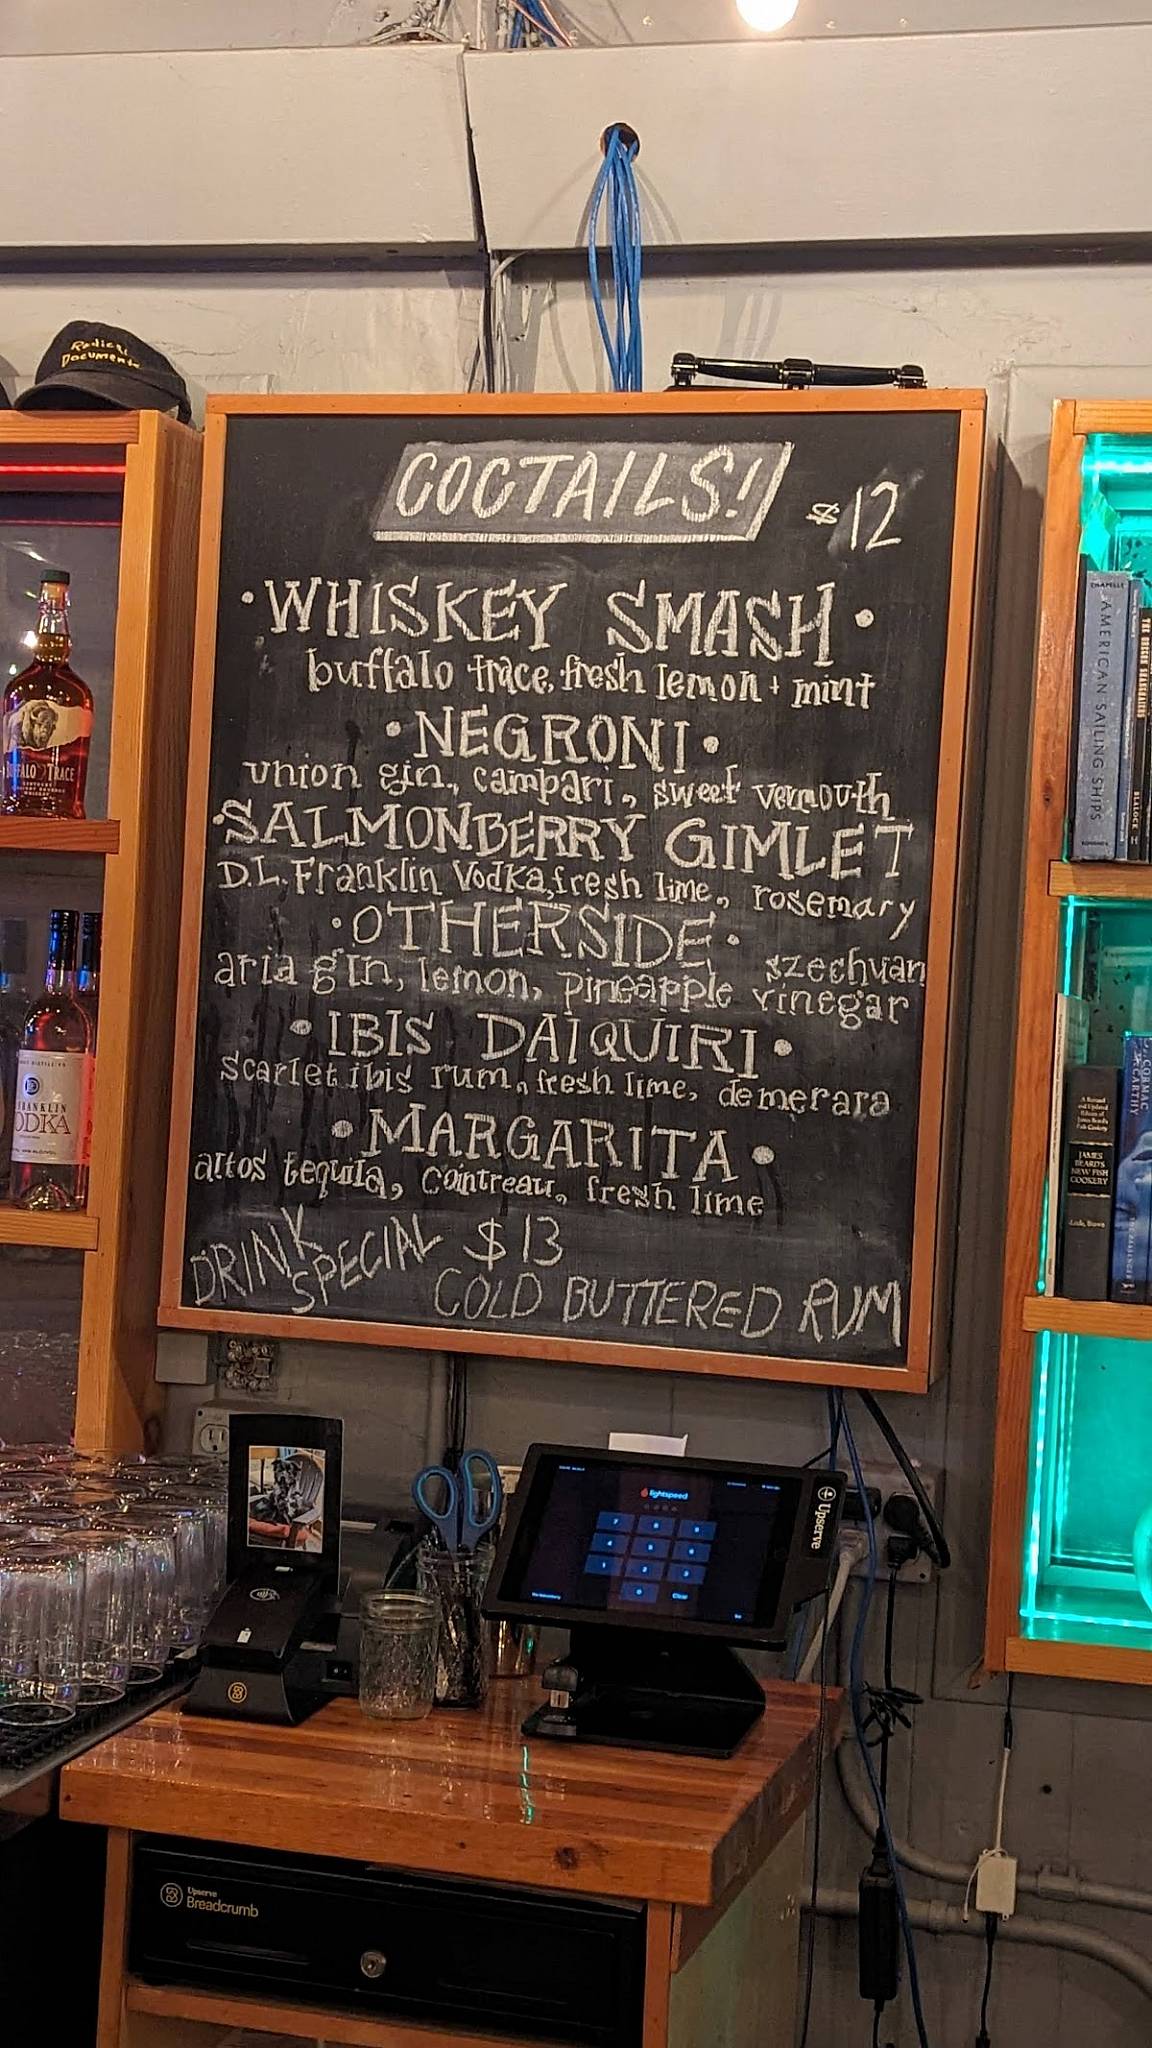 Radical
Documents
COCTAILS!
$12
•WHISKEY SMASH•
buffalo trace, fresh lemon + mint
•NEGRONI•
union gin, campari, sweet vermouth
•SALMONBERRY GIMLET
D.L. Franklin Vodka, fresh lime, rosemary
•OTHERSIDE•
aria gin, lemon, pineapple szechuan vinegar
•IBIS DAIQUIRI•
scarlet ibis rum, fresh lime, demerara
•MARGARITA•
altos tequila, cointreau, fresh lime
DRINK SPECIAL $13
COLD BUTTERED RUM
BUFFALO TRACE
FRANKLIN
VODKA
CHAPELLE
AMERICAN SAILING SHIPS
CORMAC
McCARTHY
JAMES
BEARD'S
NEW FISH
COOKERY
lightspeed
7 8 9
4 5 6
1 2 3
0 Clear
Upserve
Upserve
Breadcrumb